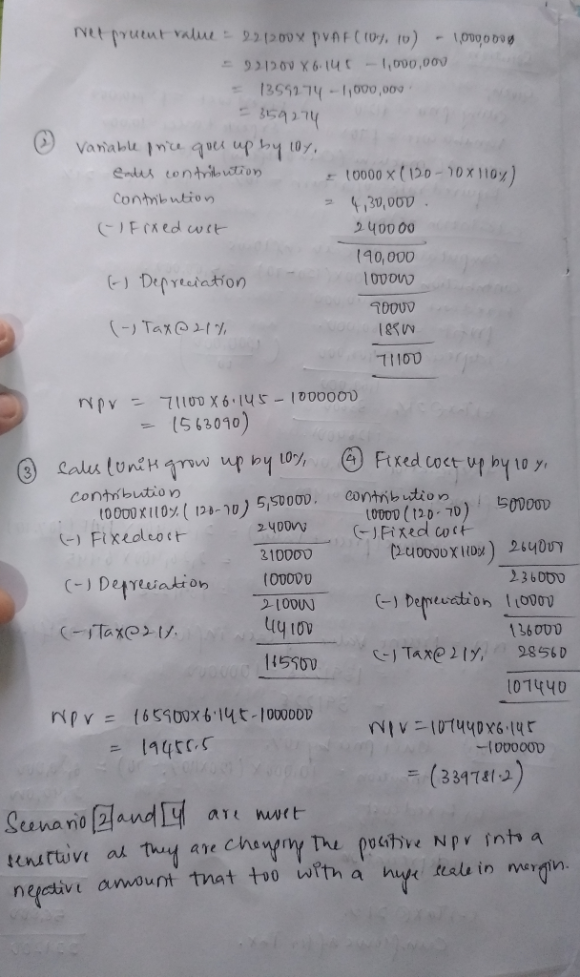 Net present value = 221200 x PVAF (10%, 10) - 1,000,0000
= 221200 x 6.145 - 1,000,000
= 1359274 - 1,000,000
= 359274
② Variable price goes up by 10%.
sales contribution = 10000 x (120 - 70 x 110%)
Contribution = 4,30,000.
(-) Fixed cost 240000
190,000
(-) Depreciation 100000
90000
(-) Tax @ 21% 18900
71100
NPV = 71100 x 6.145 - 1000000
= (563090)
③ Sales (Units grow up by 10%
contribution
10000 x 110% (120-70) 5,50000.
(-) Fixed cost 240000
310000
(-) Depreciation 100000
210000
(-) Tax @ 21%. 44100
165900
NPV = 165900 x 6.145 - 1000000
= 19455.5
④ Fixed cost up by 10%.
contribution
10000 (120-70) 500000
(-) Fixed cost
(240000 x 110%) 264000
236000
(-) Depreciation 1,0000
136000
(-) Tax @ 21%, 28560
107440
NPV = 107440 x 6.145
- 1000000
= (339781.2)
Scenario [2] and [4] are most
sensitive as they are changing the positive NPV into a
negative amount that too with a huge scale in margin.